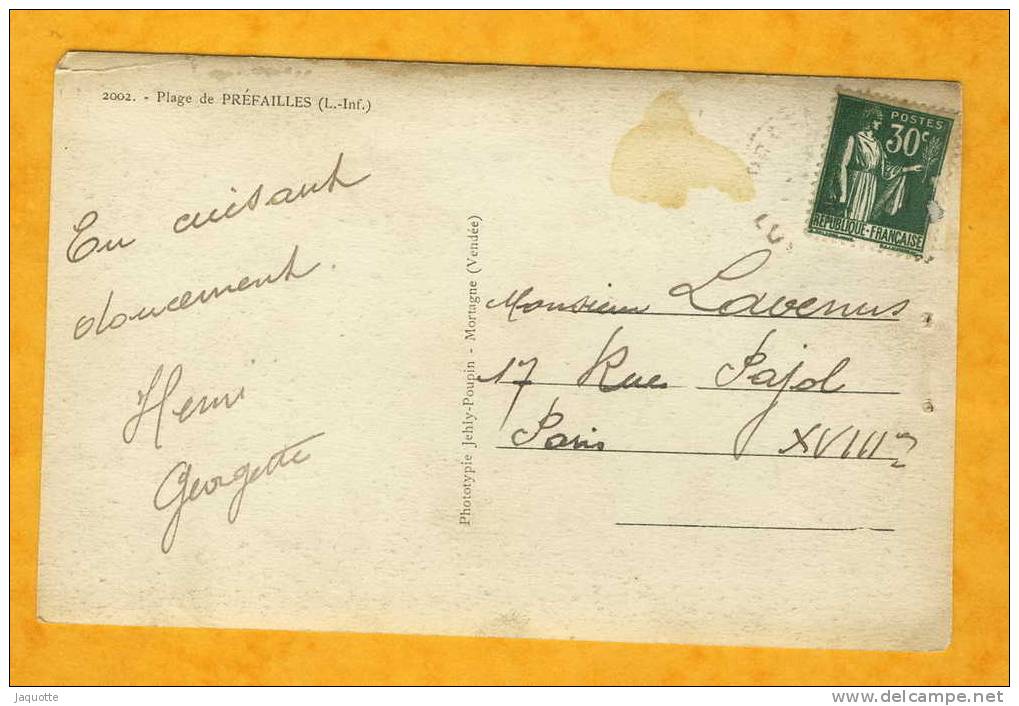 2002. - Plage de PRÉFAILLES (L.-Inf.)
En cuisant
doucement.
Henri
Georgette
Phototypie Jehly-Poupin - Mortagne (Vendée)
POSTES
30c
RÉPUBLIQUE-FRANÇAISE
Monsieur Lavenus
17 Rue Pajol
Paris XVIIIe
Jaquotte
www.delcampe.net